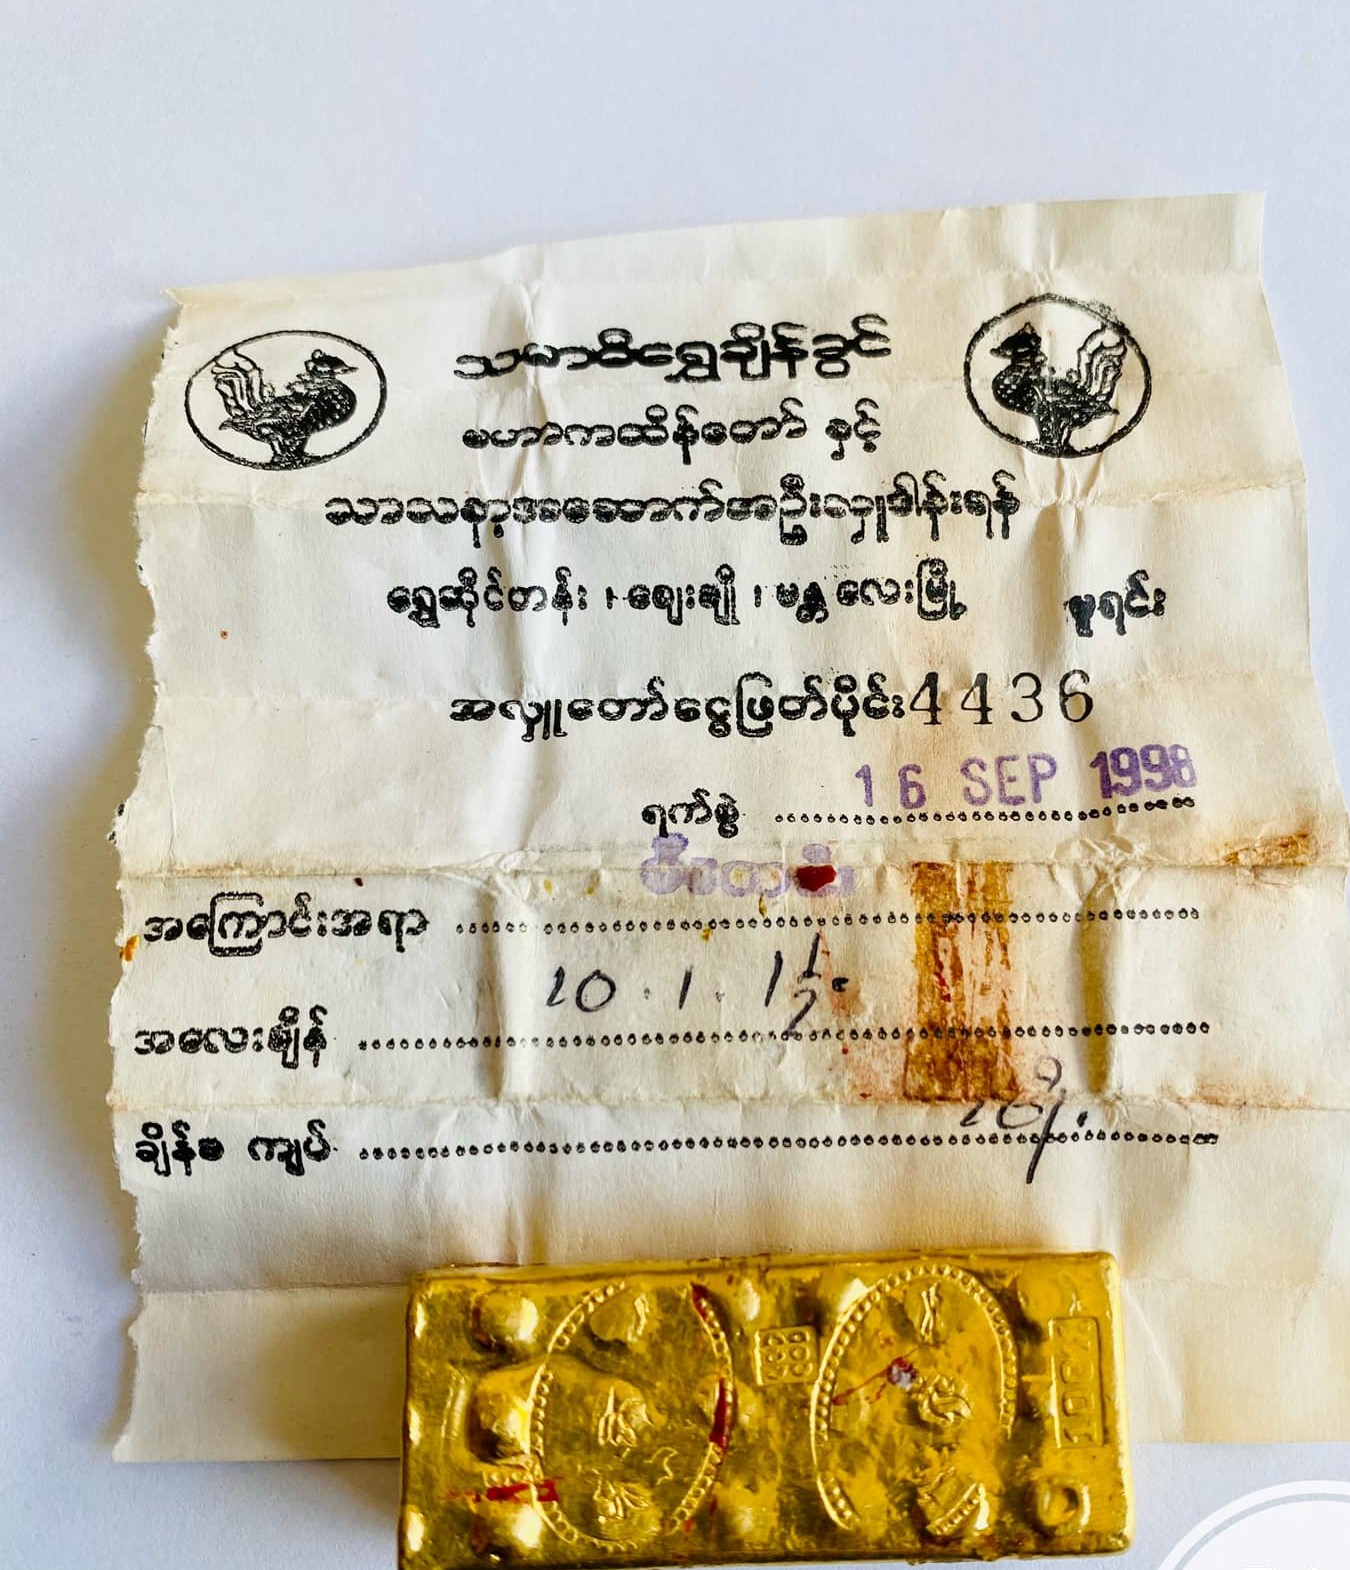 သမာဓိရွှေချိန်ခွင်
မဟာကထိန်တော် နှင့်
သာသနာ့အဆောက်အဦးလှူဒါန်းရန်
ရွှေဆိုင်တန်း ၊ ဈေးချို ၊ မန္တလေးမြို့ မူရင်း
အလှူတော်ငွေဖြတ်ပိုင်း 4436
ရက်စွဲ 16 SEP 1998
အကြောင်းအရာ
အလေးချိန် 20 . 1 . 1 1/2
ချိန်ခ ကျပ်
999